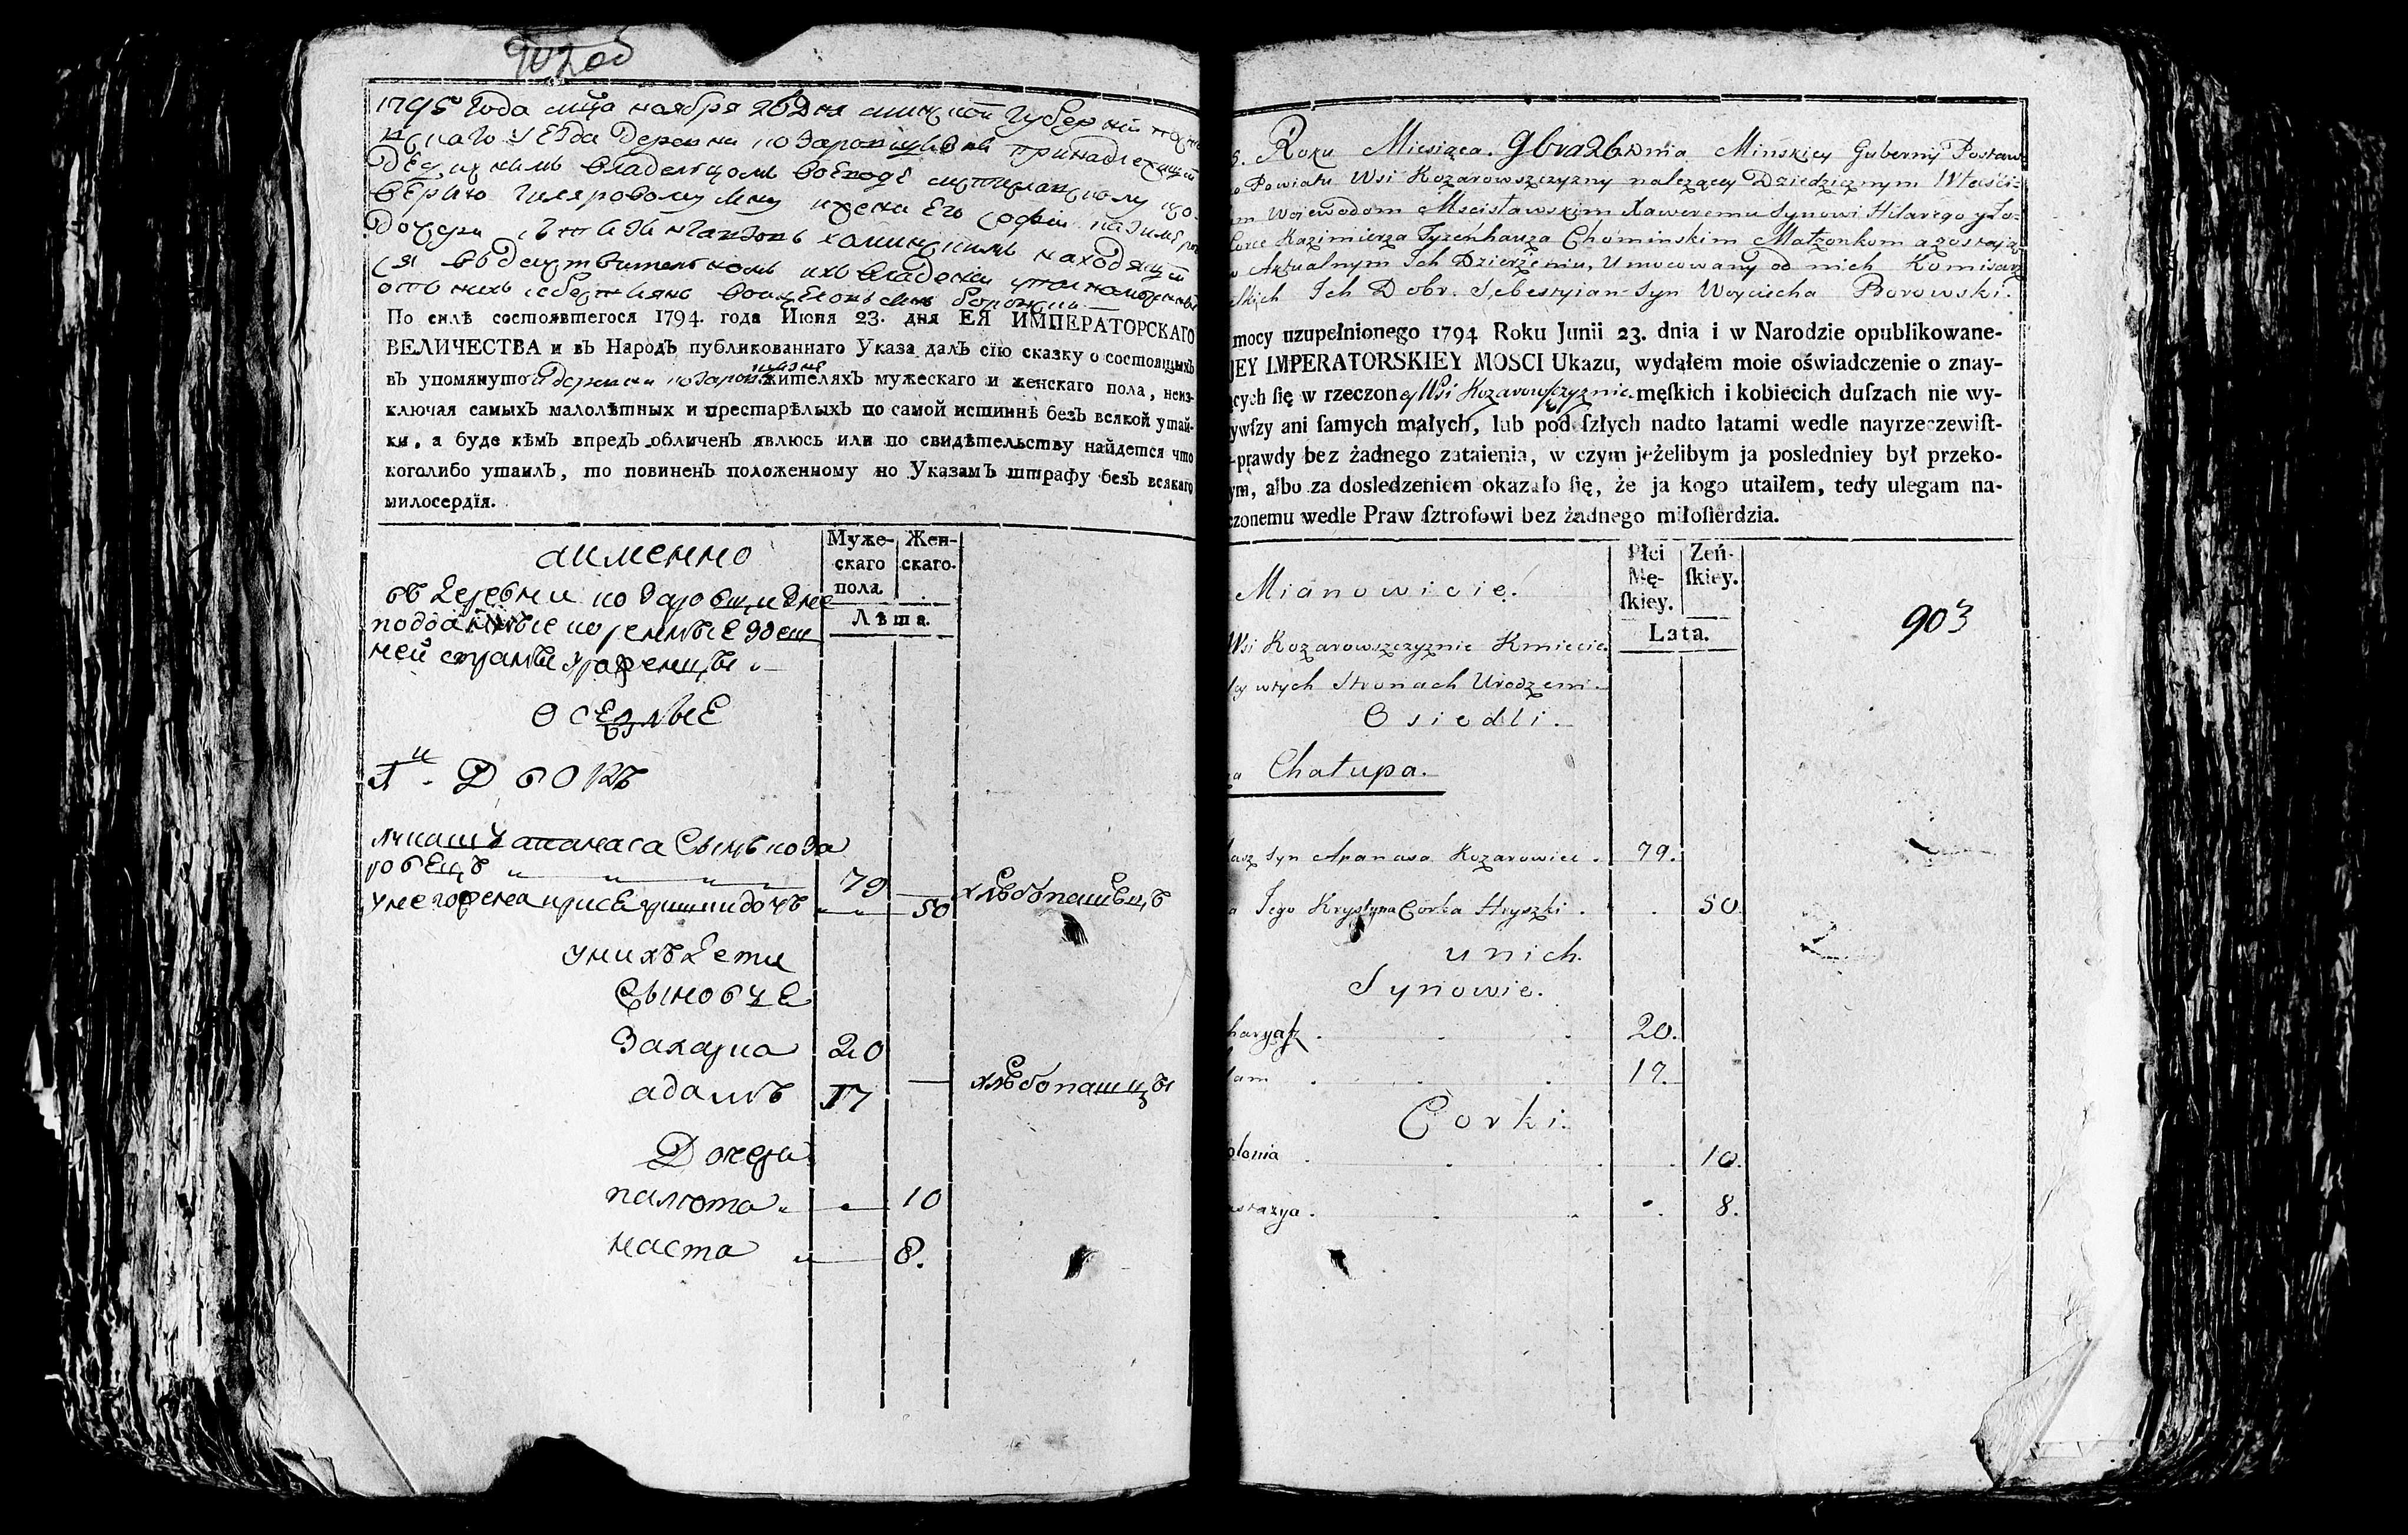 902 об
1795 Года мца ноября 26 Дня минской Губернии
уезда деревни козаровщизни принадлежащей
владельцом воеводе
его
дочери хоминским находящей
ся въ действительномъ ихъ владении
отъ нихъ
По силѣ состоявшегося 1794. года Июня 23. дня ЕЯ ИМПЕРАТОРСКАГО
ВЕЛИЧЕСТВА и въ НародЪ публикованнаго Указа далЪ сїю сказку о состоящихЪ
въ упомянутой деревни козаровщизне жителяхЪ мужескаго и женскаго пола, неиз-
ключая самыхЪ малолѣтныхЪ и престарѣлыхЪ по самой истиннѣ безЪ всякой утай-
ки, а буде кѣмЪ впредЪ обличенЪ явлюсь или по свидѣтельству найдется что
коголибо утаилЪ, то повиненЪ положенному по УказамЪ штрафу безЪ всякаго
милосердїя.
аименно
въ деревни козаровщизне
подданные коренные здеш
ней страны уроженцы
Муже-
скаго
пола
Жен-
скаго.
Лѣта.
Оседлые
1й Дворъ
лукашъ апанаса сынъ коза
ровецъ 79 хлѣбопашецъ
у него жена крися гришки дочъ 50
у нихъ дети
сыновье
Захарка 20
адамъ 17 хлѣбопашцы
Дочери
палюта 10
наста 8.
Roku Miesiąca 9bra 26 Dnia Minskiey Gubernij Postaws
Powiatu Wsi Kozarowszczyzny należącey Dziedzicznym Właści-
Wojewodom Mscisławskim Xaweremu Synowi Hilarego y Zo-
Corce Kazimierza Tyzenhauza Chominskim Małżonkom a zostając
w Aktualnym Ich Dzierżeniu, Umocowany od nich Komisarz
Ich Dobr. Sebestyian Syn Woyciecha Borowski.
mocy uzupełnionego 1794 Roku Junii 23. dnia i w Narodzie opublikowane-
JEY IMPERATORSKIEY MOSCI Ukazu, wydałem moie oświadczenie o znay-
ących ſię w rzeczoney Wsi Kozarowſzczyznie męſkich i kobiecich duſzach nie wy-
ywſzy ani ſamych małych, lub pod ſzłych nadto latami wedle nayrzeczewiſt-
prawdy bez żadnego zataienia, w czym jeżelibym ja posledniey był przeko-
ym, albo za dosledzeniem okazało ſię, że ja kogo utaiłem, tedy ulegam na-
czonemu wedle Praw ſztrofowi bez żadnego miłoſierdzia.
Mianowicie.
Płci
Mę-
ſkiey.
Zeń-
ſkiey.
Lata.
903
Wsi Kozarowszczyznie Kmiecie
wtych Stronach Urodzeni.
Osiedli.
Chałupa.
asz Syn Apanasa Kozarowiec. 79.
a Jego Krystyna Corka Hryszki. 50.
u nich.
Synowie.
haryaſz 20.
dam 17.
Corki.
olonia 10.
astazya. 8.